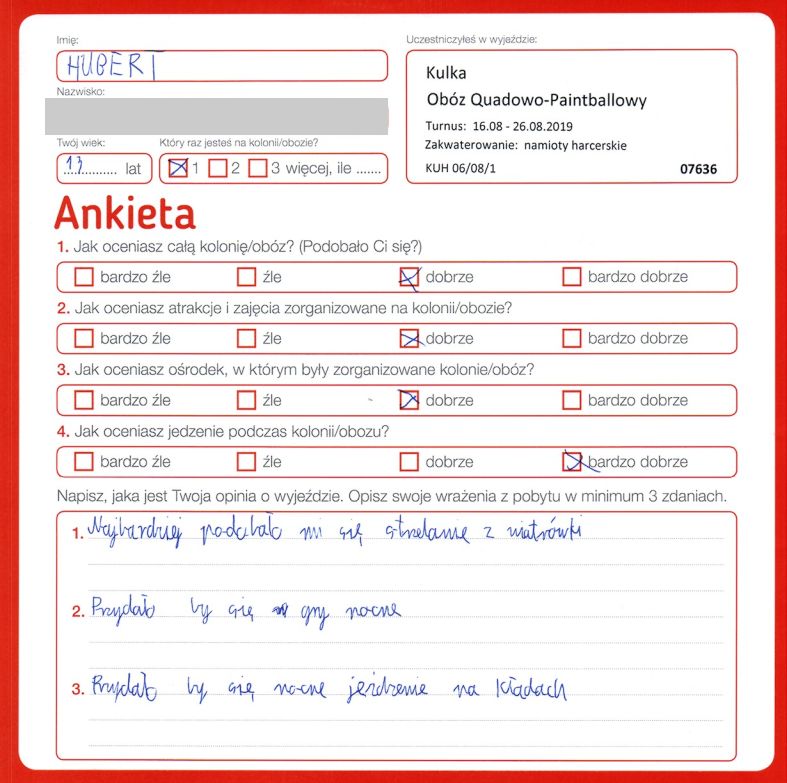 Imię:
HUBERT
Nazwisko:
Twój wiek:
13 lat
Który raz jesteś na kolonii/obozie?
1 2 3 więcej, ile .......
Uczestniczyłeś w wyjeździe:
Kulka
Obóz Quadowo-Paintballowy
Turnus: 16.08 - 26.08.2019
Zakwaterowanie: namioty harcerskie
KUH 06/08/1 07636
Ankieta
1. Jak oceniasz całą kolonię/obóz? (Podobało Ci się?)
bardzo źle źle dobrze bardzo dobrze
2. Jak oceniasz atrakcje i zajęcia zorganizowane na kolonii/obozie?
bardzo źle źle dobrze bardzo dobrze
3. Jak oceniasz ośrodek, w którym były zorganizowane kolonie/obóz?
bardzo źle źle dobrze bardzo dobrze
4. Jak oceniasz jedzenie podczas kolonii/obozu?
bardzo źle źle dobrze bardzo dobrze
Napisz, jaka jest Twoja opinia o wyjeździe. Opisz swoje wrażenia z pobytu w minimum 3 zdaniach.
1. Najbardziej podobało mi się strzelanie z wiatrówki
2. Przydało by się gry nocne
3. Przydało by się nocne jeżdzenie na kładach